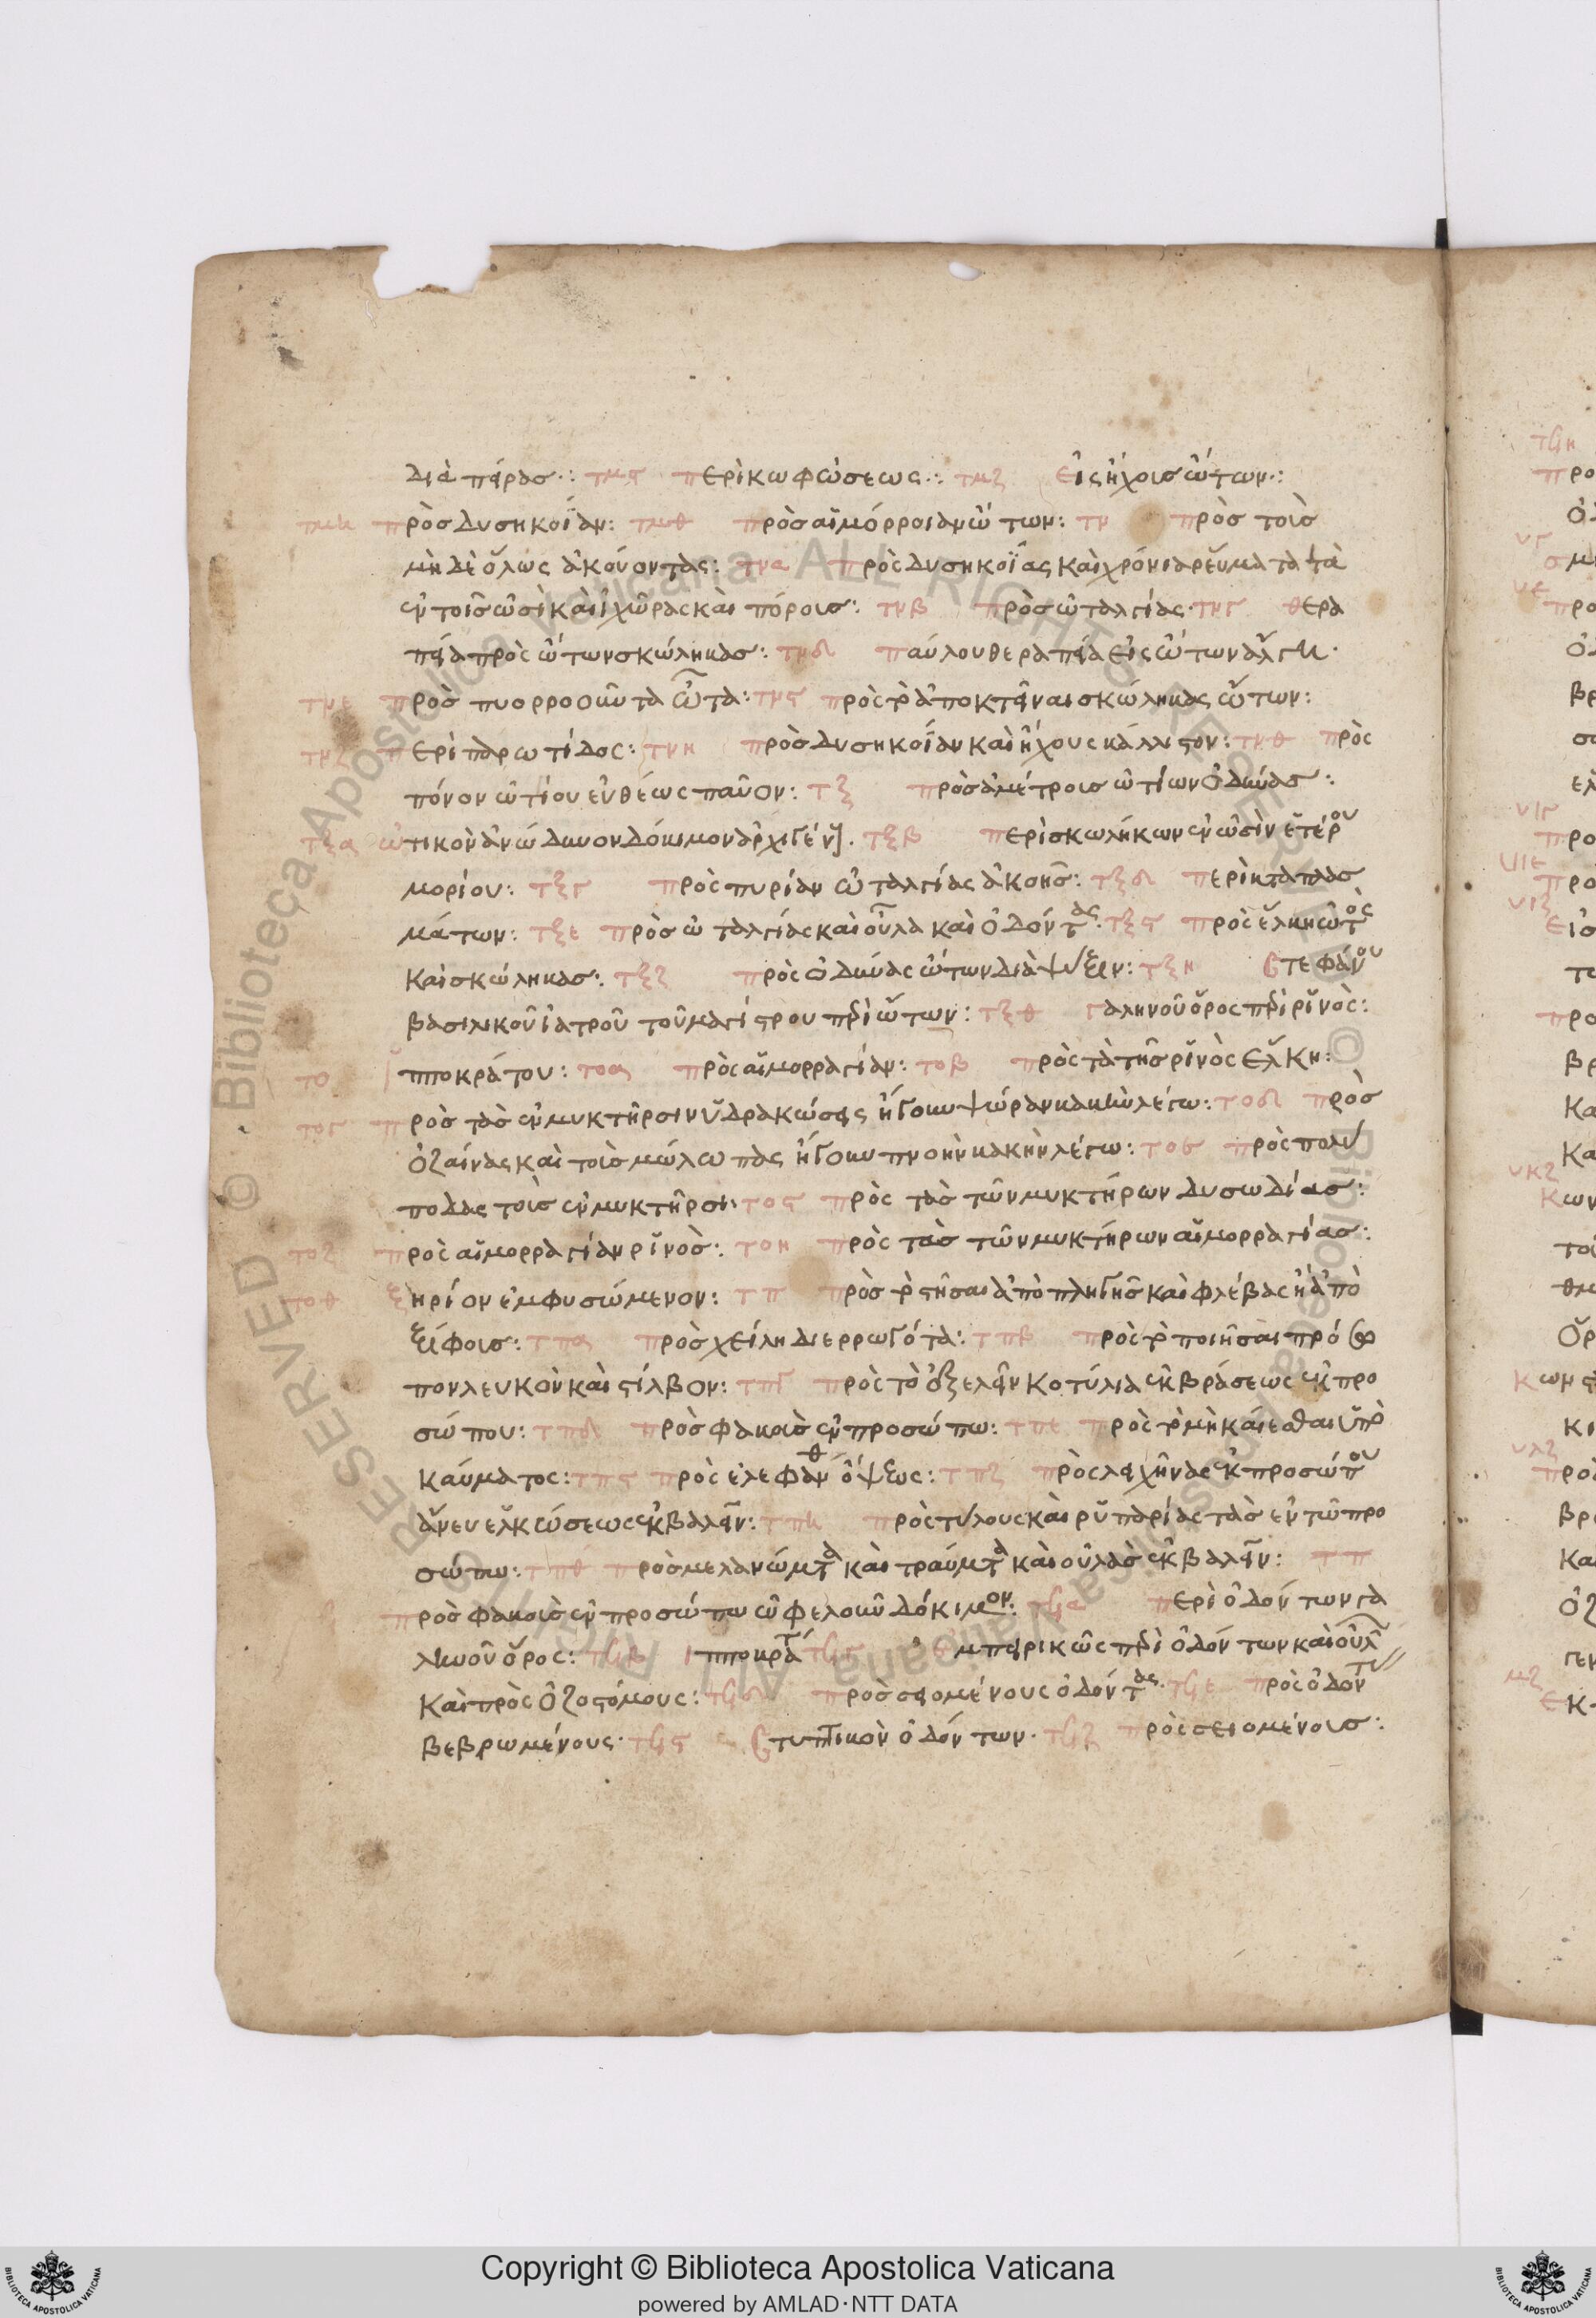 διὰ πείρας·: τμϛ περὶ κωφώσεως·: τμζ εἰς ἤχοις ὤτων·:
τμη πρὸς δυσηκοΐαν: τμθ πρὸς αἱμόρροιαν ὤτων: τν πρὸς τοὶς
μὴ δὲ ὅλως ἀκούοντας: τνα πρὸς δυσηκοΐας καὶ χρόνια ρεύματα τὰ
ἐν τοῖς ὠσὶ καὶ ἰχῶρας καὶ πόροις: τνβ πρὸς ὠταλγίας· τνγ θερα
πεία πρὸς ὤτων σκώληκας: τνδ παύλου θεραπεία εἰς ὤτων ἄλγη·
τνε πρὸς πυορροοῦντα ὦτα: τνϛ πρὸς τὸ ἀποκτεῖναι σκώληκας ὤτων:
τνζ περὶ παρωτίδος: τνη πρὸς δυσηκοΐαν καὶ ἤχους κάλλιστον: τνθ πρὸς
πόνον ὠτίου εὐθέως παῦον: τξ πρὸς ἀμέτροις ὠτίων ὀδύνας:
τξα ὠτικὸν ἀνώδυνον δόκιμον ἀρχιγέν. τξβ περὶ σκωλήκων ἐν ὠσὶν ἑτέρου
μορίου: τξγ πρὸς πυρίαν ὠταλγίας ἀκοῆς: τξδ περὶ καταπλασ
μάτων: τξε πρὸς ὠταλγίας καὶ οὖλα καὶ ὀδόντας· τξϛ πρὸς ἕλκη ὠτὸς
καὶ σκώληκας: τξζ πρὸς ὀδύνας ὤτων διὰ ψύξιν: τξη στεφάνου
βασιλικοῦ ἰατροῦ τοῦ μαγίστρου περὶ ὤτων: τξθ γαληνοῦ ὅρος περὶ ρινός:
το ἱπποκράτου: τοα πρὸς αἱμορραγίαν: τοβ πρὸς τὰ τῆς ρινὸς ἕλκη:
τογ πρὸς τὰς ἐν μυκτῆρσιν ὑδρακώσεις ἤγουν ψώραν κακὴν λέγω: τοδ πρὸς
ὀζαίνας καὶ τοὶς μώλωπας ἤγουν πνοὴν κακὴν λέγω: τοε πρὸς πολύ
ποδας τοὶς ἐν μυκτῆρσι· τοϛ πρὸς τὰς τῶν μυκτήρων δυσωδίας:
τοζ πρὸς αἱμορραγίαν ρινός: τοη πρὸς τὰς τῶν μυκτήρων αἱμορραγίας:
τοθ ξηρίον ἐμφυσώμενον: τπ πρὸς τὸ στῆσαι ἀπὸ πληγῆς καὶ φλέβας ἢ ἀπὸ
ξίφοις: τπα πρὸς χείλη διερρωγότα: τπβ πρὸς τὸ ποιῆσαι πρόσω
πον λευκὸν καὶ στίλβον: τπγ πρὸς τὸ ἐξελεῖν κοτύλια ἐκβράσεως ἐκ προ
σώπου: τπδ πρὸς φακοὶς ἐν προσώπω: τπε πρὸς τὸ μὴ καίεσθαι ὑπὸ
καύματος: τπϛ πρὸς ἐλεφανθ ὄψεως: τπζ πρὸς λειχῆνας ἐκ προσώπου
ἄνευ ἑλκώσεως ἐκβαλεῖν: τπη πρὸς τύλους καὶ ρυπαρίας τὰς ἐν τῶ προ
σώπω: τπθ πρὸς μελανώματα καὶ τραύματα καὶ οὐλὰς ἐκβαλεῖν: τπ
πρὸς φακοὶς ἐν προσώπω ὠφελοῦν δόκιμον: τϟα περὶ ὀδόντων γα
ληνοῦ ὅρος: τϟβ ἱπποκράτ τϟγ ἐμπειρικῶς περὶ ὀδόντων καὶ οὖλ
καὶ πρὸς ὀζοστόμους: τϟδ πρὸς σειομένους ὀδόντας· τϟε πρὸς ὀδόντ
βεβρωμένους· τϟϛ στυπτικὸν ὀδόντων· τϟζ πρὸς σειομένοις:
Copyright © Biblioteca Apostolica Vaticana
powered by AMLAD·NTT DATA